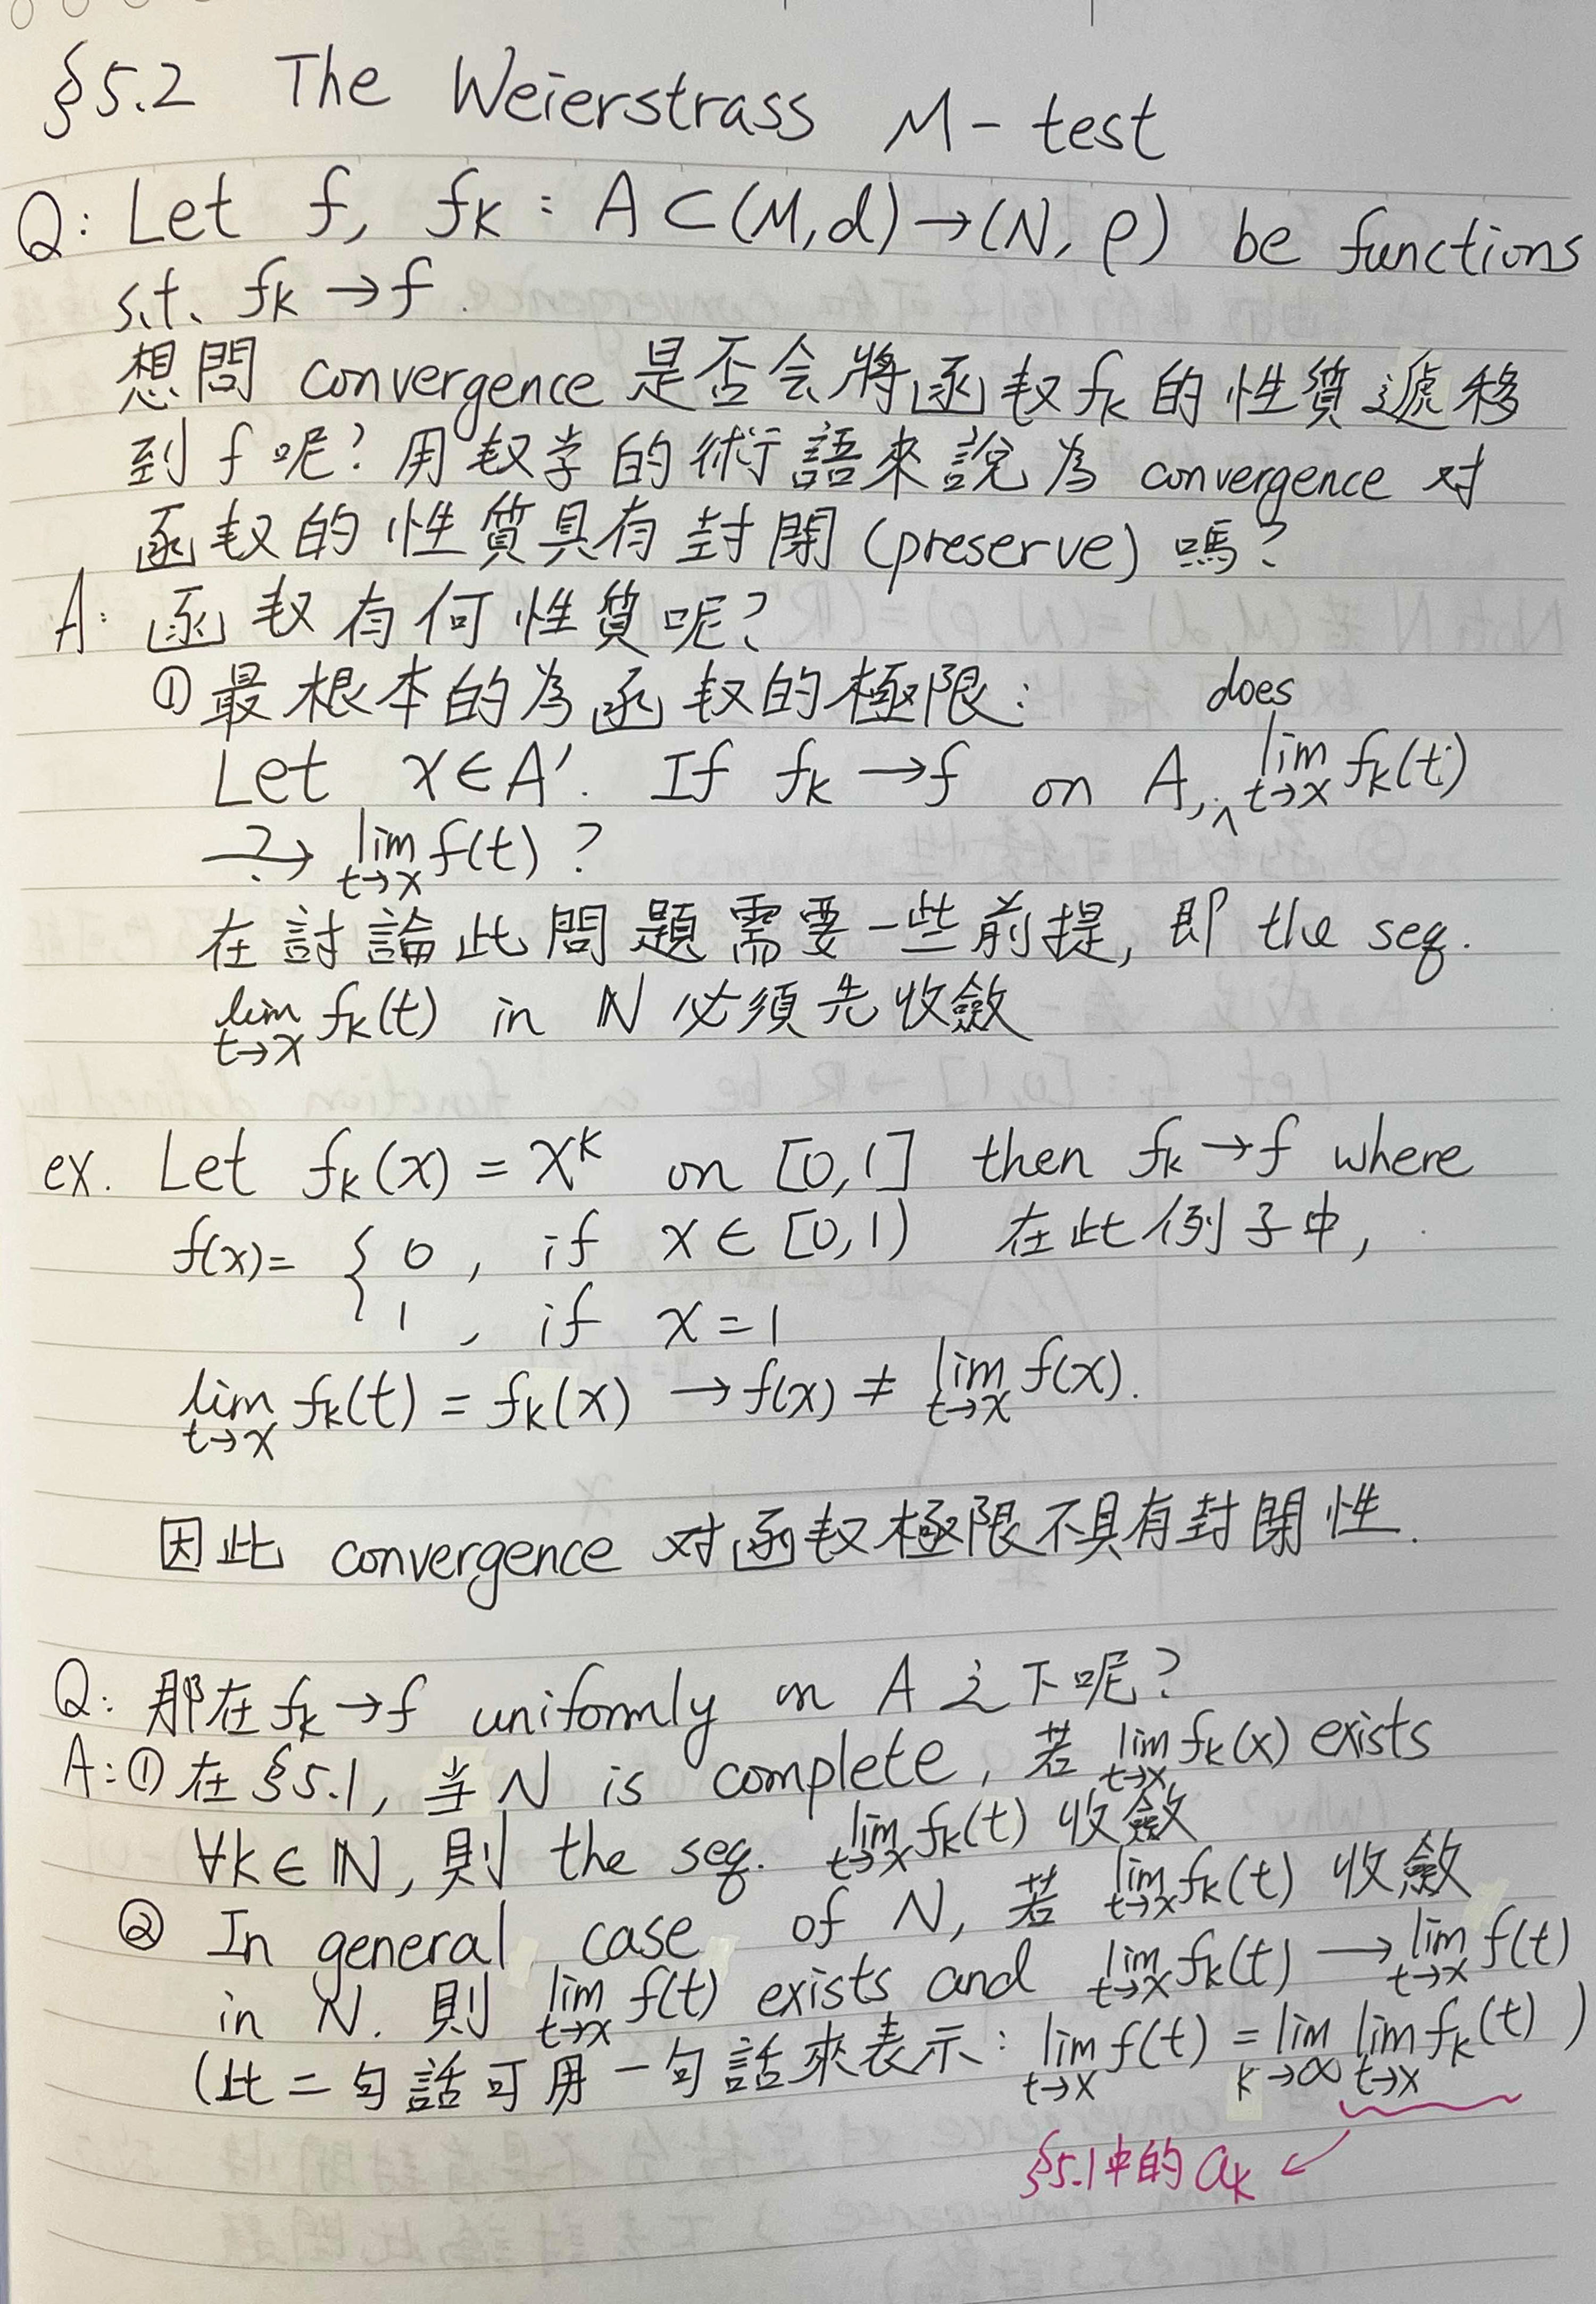 §5.2 The Weierstrass M-test
Q: Let f, fₖ : A⊂(M,d)→(N,ρ) be functions
s.t. fₖ→f.
想問 convergence 是否会將函数fₖ的性質遞移
到 f 呢? 用数学的術語來說為 convergence 对
函数的性質具有封閉(preserve)嗎?
A: 函数有何性質呢?
①最根本的為函数的極限:
Let x∈A'. If fₖ→f on A, does lim_{t→x} fₖ(t)
→? lim_{t→x} f(t)?
在討論此問題需要一些前提, 即 the seq.
lim_{t→x} fₖ(t) in N 必須先收斂
ex. Let fₖ(x)=xᵏ on [0,1] then fₖ→f where
f(x)= { 0 , if x∈[0,1) 在此例子中,
1 , if x=1
lim_{t→x} fₖ(t) = fₖ(x) →f(x) ≠ lim_{t→x} f(x).
因此 convergence 对函数極限不具有封閉性.
Q: 那在fₖ→f uniformly on A 之下呢?
A:①在§5.1, 当 N is complete, 若 lim_{t→x} fₖ(x) exists
∀k∈ℕ, 則 the seq. lim_{t→x} fₖ(t) 收斂
② In general case of N, 若 lim_{t→x} fₖ(t) 收斂
in N. 則 lim_{t→x} f(t) exists and lim_{t→x} fₖ(t) → lim_{t→x} f(t)
(此二句話可用一句話來表示: lim_{t→x} f(t) = lim_{k→∞} lim_{t→x} fₖ(t) )
§5.1中的 aₖ ↙